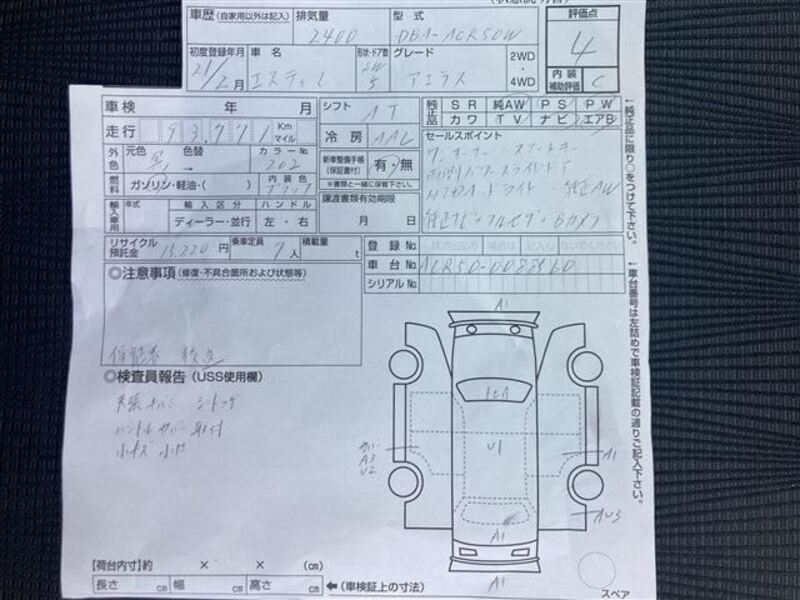 車歴 (自家用以外は記入) 排気量 型式 評価点
2400 DBA-ACR50W 4
初度登録年月 車名 形状・ドア数 グレード 2WD
21/2月 エスティマ SW 5 アエラス ・4WD 内装補助評価 C
車検 年 月 シフト AT 純正品 SR 純AW PS PW
カワ TV ナビ エアB
走行 93,771 Km マイル 冷房 AAC セールスポイント
外色 元色 黒 色替 → カラーNo 202 新車整備手帳(保証書付) 有・無 ワンオーナー スマートキー
※書類と一緒に保管下さい。 両側パワースライドドア
燃料 ガソリン・軽油・( ) 内装色 ブラック HIDヘッドライト 純正AW
輸入車用 年式 輸入区分 ハンドル 譲渡書類有効期限
ディーラー・並行 左・右 月 日 純正ナビ フルセグ Bカメラ
リサイクル預託金 15,220円 乗車定員 7人 積載量 t 登録No.
車台No. ACR50-
シリアルNo.
◎注意事項 (修復・不具合箇所および状態等)
◎検査員報告 (USS使用欄)
小キズ 小凹
A1
U1
A3
U2
A1
AU3
A1
A1
スペア
【荷台内寸】約 × × (cm)
長さ cm 幅 cm 高さ cm ← (車検証上の寸法)
←純正品に限り○をつけて下さい。
←車台番号は左詰めで車検証記載の通りご記入下さい。